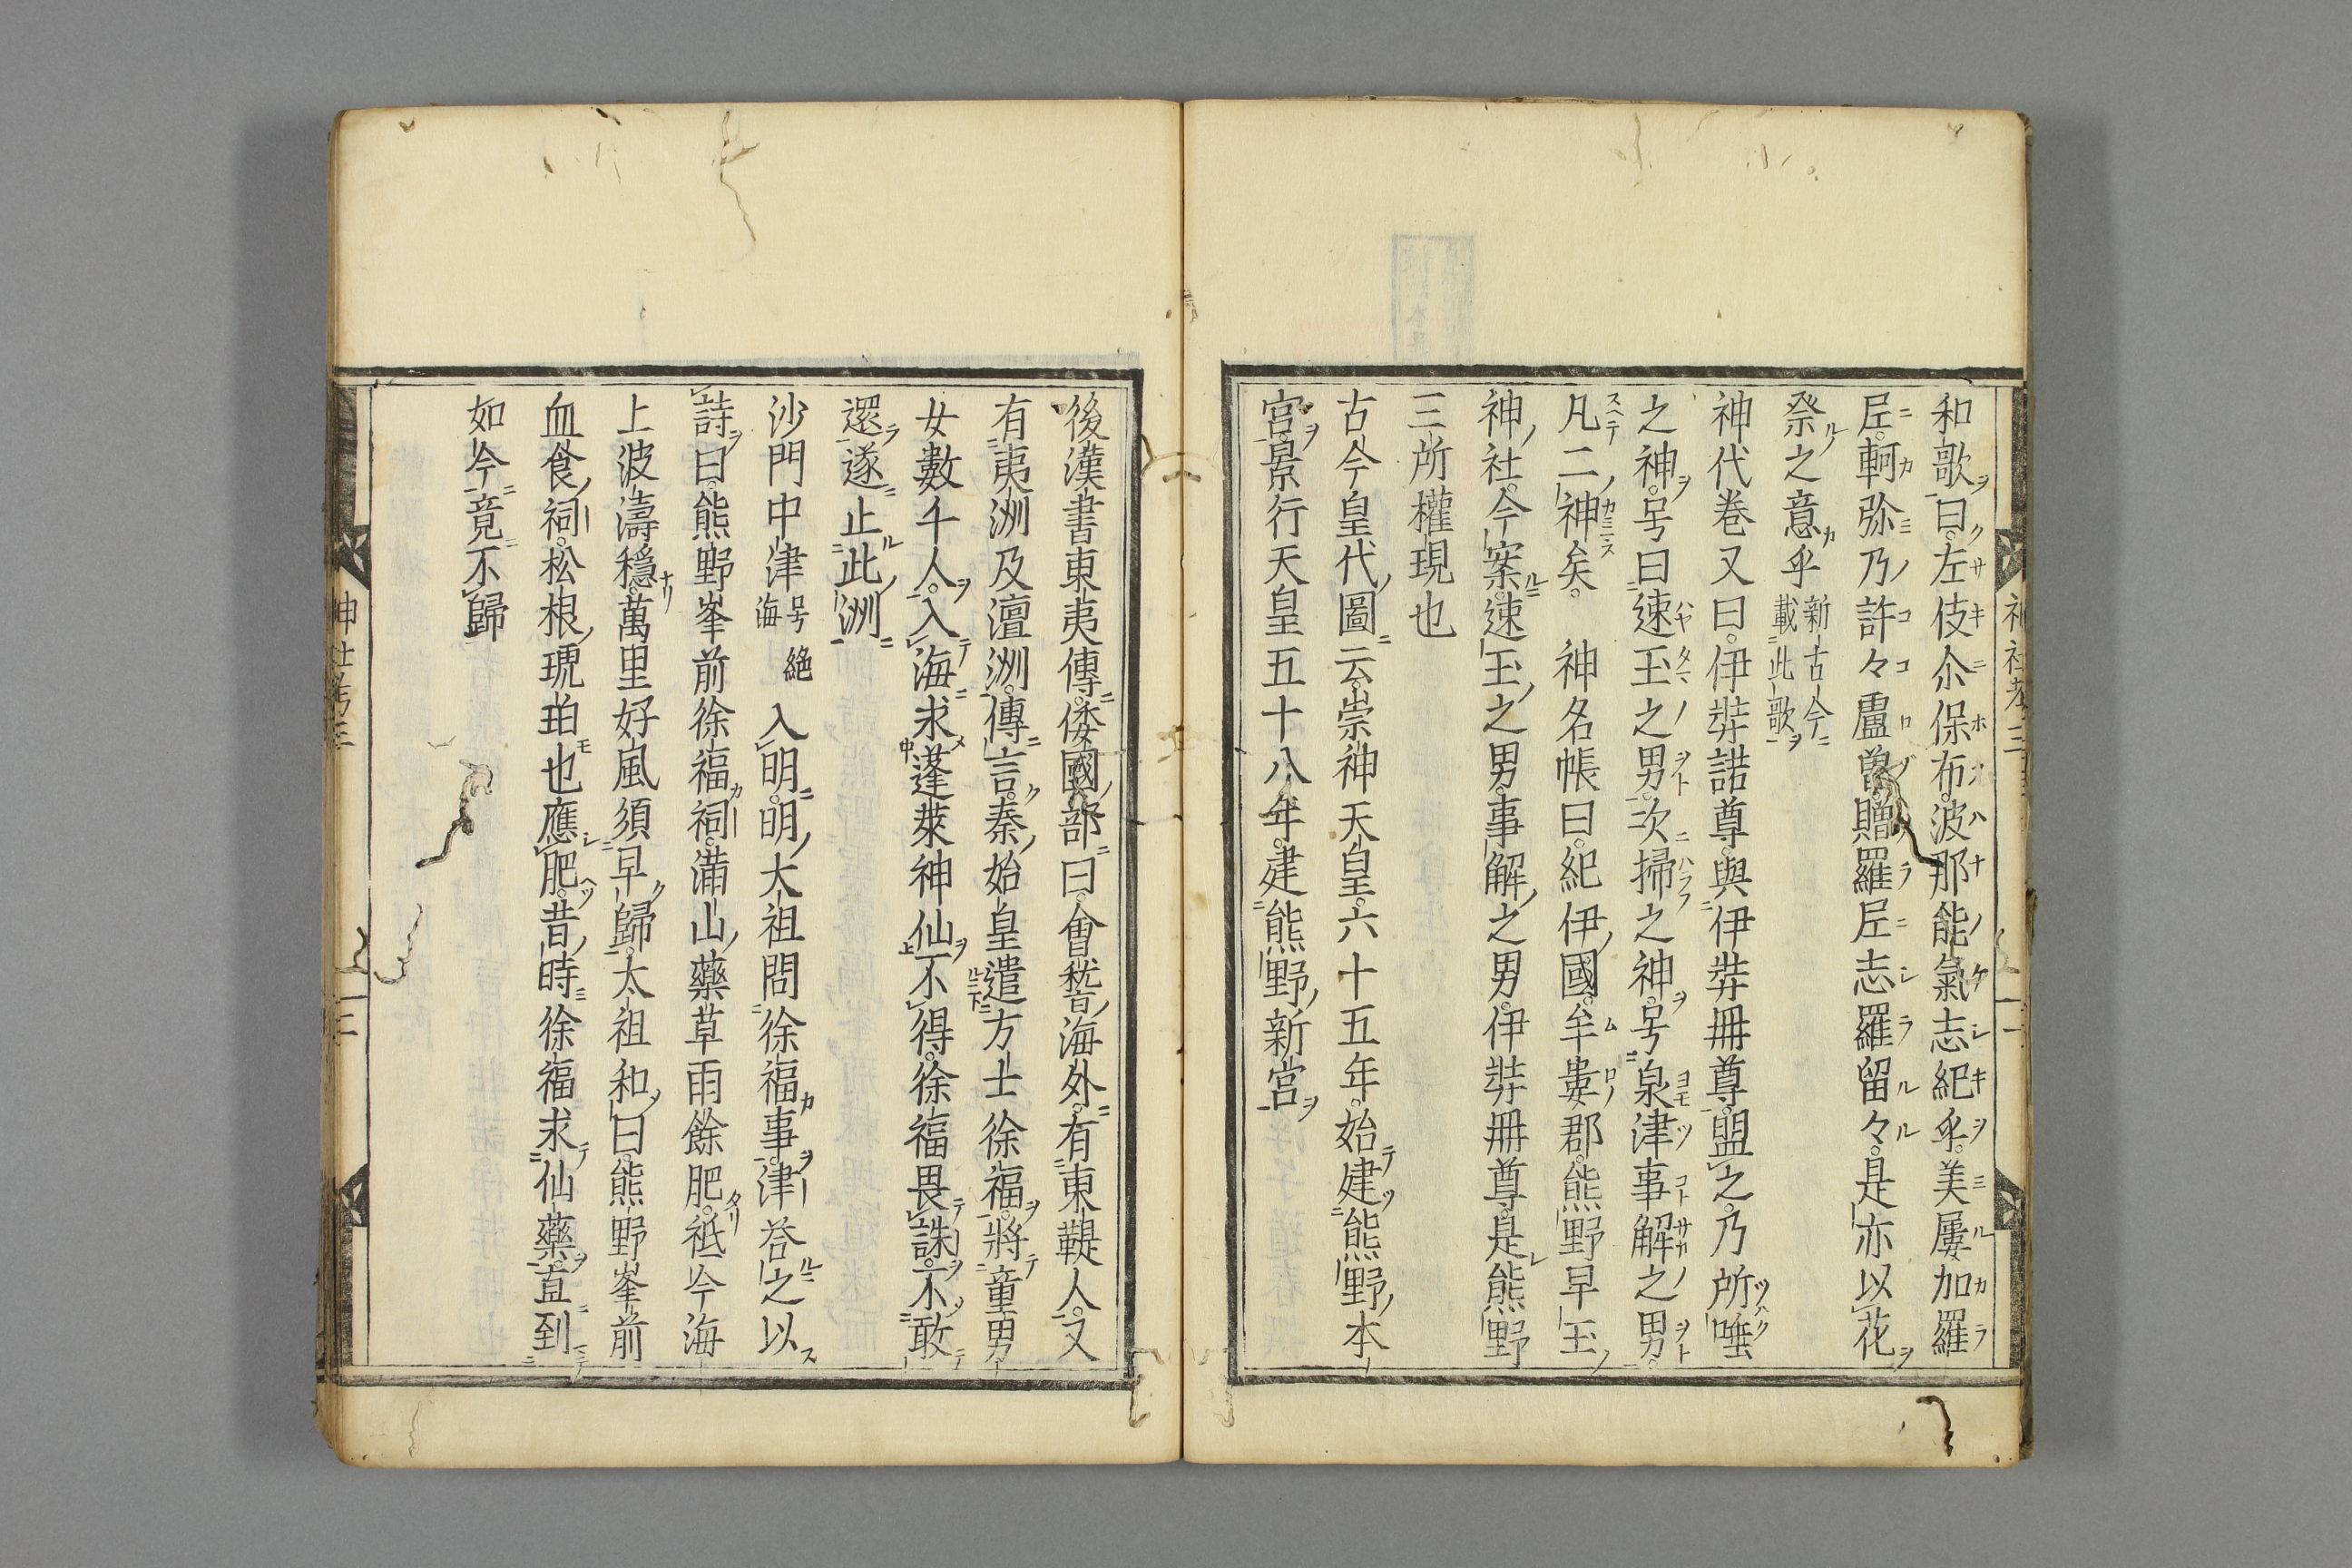 和歌曰。左伎尒保布。波那能氣志紀乎。美屢加羅
𡰱。軻弥乃許々盧曽。贈羅𡰱志羅留々。是亦以花
祭之意乎 新古今載此歌
神代巻又曰。伊弉諾尊。與伊弉冊尊。盟之。乃所唾
之神。号曰速玉之男。次掃之神。号泉津事解之男。
凡二神矣。 神名帳曰。紀伊國。牟婁郡。熊野早玉
神社。今案。速玉之男。事解之男。伊弉冊尊。是熊野
三所權現也
古今皇代圖云。崇神天皇。六十五年。始建熊野本
宮。景行天皇五十八年。建熊野新宮
神社考三
後漢書東夷傳。倭國部曰。會稽海外。有東鯷人。又
有夷洲及澶洲。傳言。秦始皇遣方士徐福。將童男
女數千人。入海求蓬萊神仙不得。徐福畏誅。不敢
還遂止此洲
沙門中津 号絶海 入明。明大祖問徐福事。津荅之以
詩曰。熊野峯前徐福祠。滿山藥草雨餘肥。祗今海
上波濤穩。萬里好風須早歸。太祖和曰。熊野峯前
血食祠。松根琥珀也應肥。昔時徐福求仙藥。直到
如今竟不歸
神社考三